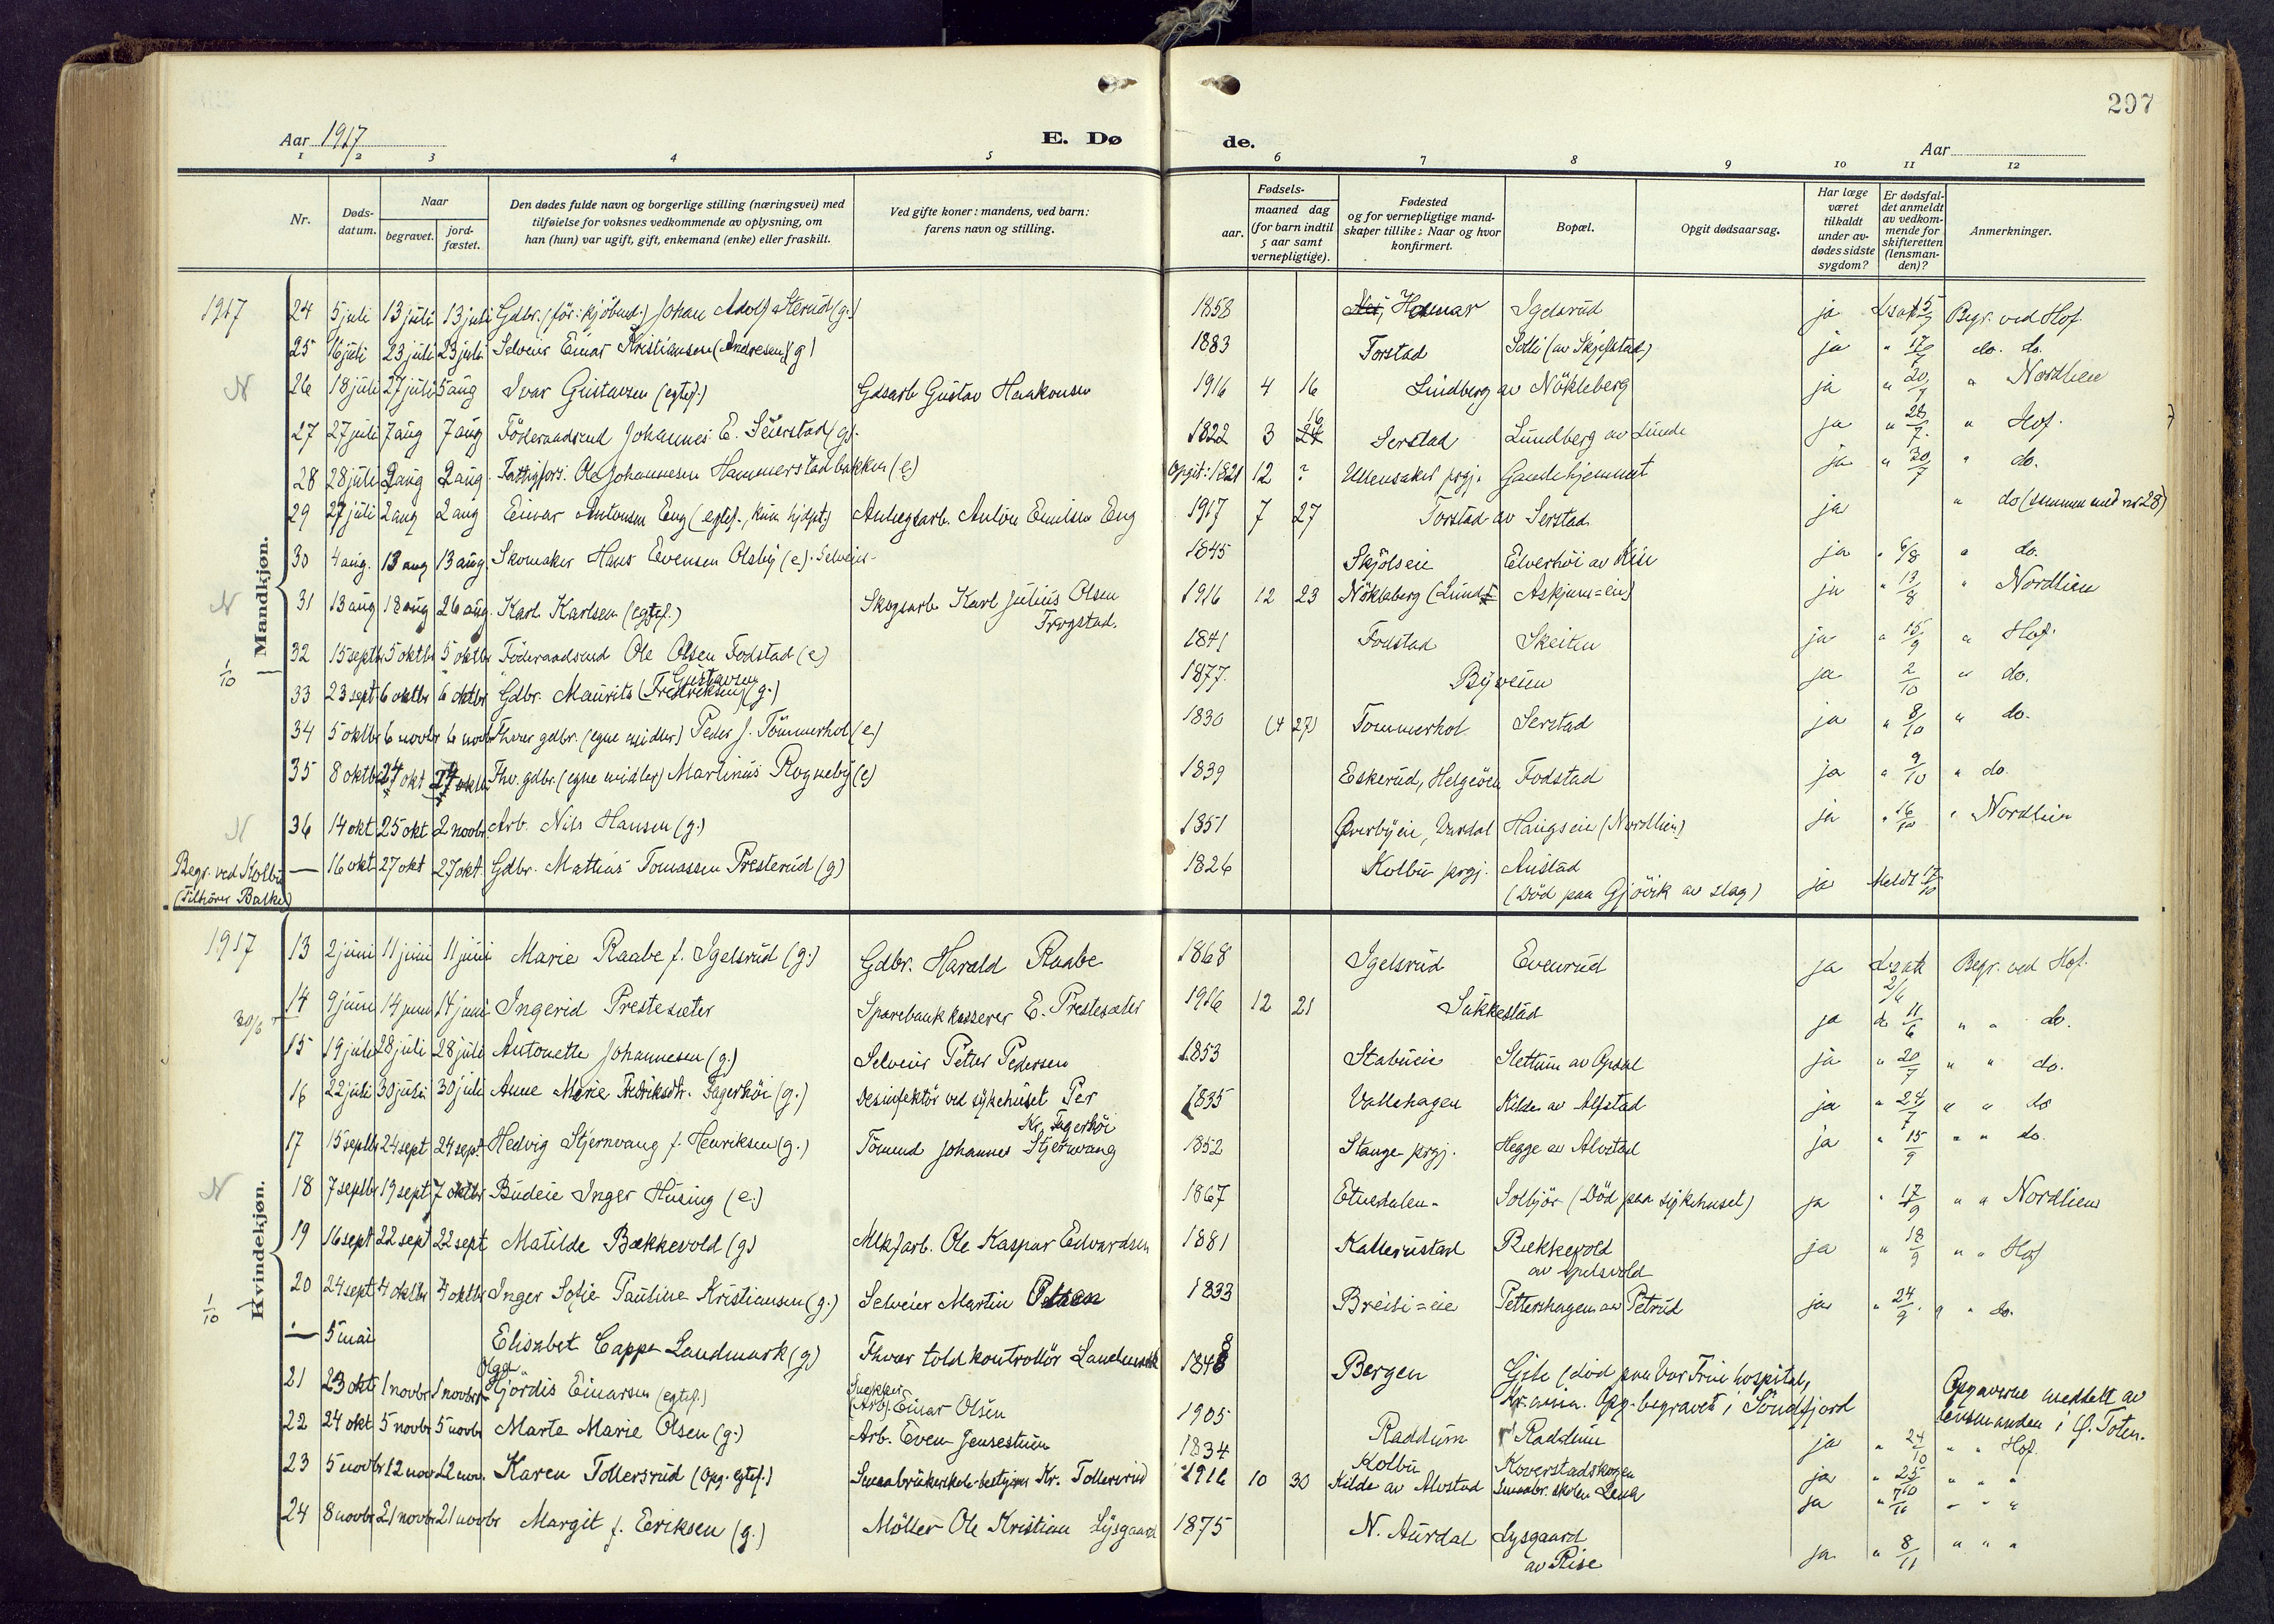 297
Aar 1917
E. Dø
de.
Aar
1 2 3 4 5 6 7 8 9 10 11 12
Nr.
Døds-
datum.
Naar
begravet.
jord-
fæstet.
Den dødes fulde navn og borgerlige stilling (næringsvei) med
tilføielse for voksnes vedkommende av oplysning, om
han (hun) var ugift, gift, enkemand (enke) eller fraskilt.
Ved gifte koner: mandens, ved barn:
farens navn og stilling.
Fødsels-
aar.
maaned dag
(for barn indtil
5 aar samt
vernepligtige).
Fødested
og for vernepligtige mand-
skaper tillike: Naar og hvor
konfirmert.
Bopæl.
Opgit dødsaarsag.
Har læge
været
tilkaldt
under av-
dødes sidste
sygdom?
Er dødsfal-
det anmeldt
av vedkom-
mende for
skifteretten
(lensman-
den)?
Anmerkninger.
Mandkjøn.
1917 24 5 juli 13 juli 13 juli Gdbr. (för: kjöbmd.) Johan Adolf Sterud (g.) 1858 Hamar Igelsrud ja Begr. ved Hof.
25 16 juli 23 juli 23 juli Selveier Einar Kristiansen (Andresen) (g) 1883 Torstad Sotli (av Skjelstad) ja " 17/7 do. do.
N 26 18 juli 27 juli 5 aug Ivar Gustavsen (egtef.) Gdsarb Gustav Haakonsen 1916 4 16 Lundberg av Nökleberg ja " 20/7 " Nordlien
27 27 juli 7 aug 7 aug Föderaadsmd Johannes E. Seierstad (g). 1822 3 16 Serstad Lundberg av Lunde ja " 28/7. " Hof.
28 28 juli 2 aug 2 aug. Fattigfors. Ole Johannesen Hammerstadbakken (e) Opgit: 1821 12 ? Ullensaker prgj. Gamlehjemmet ja " 30/7 " do.
29 27 juli 2 aug 2 aug Einar Antonsen Eng (egtef., kun hjdpt.) Anlegsarb. Anton Emilsen Eng 1917 7 27 Torstad av Serstad ja " do (sammen med nr 28)
30 4 aug. 13 aug 13 aug Skomaker Hans Evensen Olsby (e). Selveier 1845 Skjölseie Elverhöi av Rise ja " 6/8 " do.
N 31 13 aug 18 aug 26 aug. Karl Karlsen (egtef.) Skogsarb. Karl Julius Olsen
Trogstad. 1916 12 23 Nökleberg (Lund Askjums=eie) ja " 13/8 " Nordlien
32 15 septb 5 oktb 5 oktbr Föderaadsmd Ole Olsen Fodstad (e) 1841 Fodstad Skeiten ja " 15/9 " Hof.
1/10
Gustavsen
33 23 sept 6 oktbr 6 oktbr Gdbr. Maurits (Fredriksen) (g.) 1877. Byveien ja 2/10 " do.
34 5 oktbr 6 novbr 6 novbr Fhver gdbr. (egne midler) Peder J. Tömmerhol (e) 1830 (4 27) Tommerhol Serstad ja " 8/10 " do.
35 8 oktbr 24 okt 24 oktbr Fhv. gdbr. (egne midler) Martinus Rogneby (e) 1839 Eskerud, Helgeöen Fodstad ja " 9/10 " do.
N 36 14 okt 25 okt 2 novbr. Arb. Nils Hansen (g.) 1851 Överbyeie, Vardal Haugseie (Nordlien) ja " 16/10 " Nordlien
Begr. ved Kolbu
(Tilhörer Balke)
— 16 okt 27 okt 27 okt. Gdbr. Mattias Tomassen Presterud (g) 1826 Kolbu prgj. Austad
(Död paa Gjövik av slag) ja Meldt 17/10
Kvindekjøn.
1917 13 2 juni 11 juni 11 juni Marie Raabe f. Igelsrud (g.) Gdbr. Harald Raabe 1868 Igelsrud Evenrud ja 2/6 Begr. ved Hof.
30/6 14 9 juni 14 juni 14 juni Ingerid Prestesæter Sparebankkasserer E. Prestesæter 1916 12 21 Sukkestad ja do 11/6 " " do.
15 19 juli 28 juli 28 juli Antonette Johannesen (g.) Selveier Petter Pedersen 1853 Stabueie Slettum av Opsal ja " 20/7 " " do.
16 22 juli 30 juli 30 juli Anne Marie Fredriksdtr. Fagerhöi (g.) Desinfektör ved sykehuset Per
Kr. Fagerhöi 1835 Vallehagen Kilde av Alfstad ja " 24/7 " " do
17 15 septb 24 sept 24 sept Hedvig Stjernvang f. Henriksen (g.) Tömmd Johannes Stjernvang 1852 Stange prgj. Hegge av Alvstad ja " 15/9 " " do.
N 18 7 septbr 19 sept 7 oktbr Budeie Inger Husing (e.) 1867 Etnedalen. Solbjör (Död paa sykehuset) ja " 17/9 " " Nordlien
19 16 sept 22 sept 22 sept Matilde Bækkevold (g) Mekjarb. Ole Kaspar Edvardsen 1881 Kallerustad Bækkevold
av Spelsvold ja " 18/9 " " Hof
1/10 20 24 sept 4 oktbr 4 oktbr Inger Sofie Pauline Kristiansen (g.) Selveier Martin Olsen 1833 Breili=eie Pettershagen av Petrud ja " 24/9. " " do.
— 5 mai Elisabet Cappe Landmark (g) Fhver toldkontrollör Landmark 1848 Bergen Gjile (död paa Vor Frue hospital,
Kr.ania. Opg. begravet i Söndfjord Opgaverne meddelt av
lensmanden i Ø. Toten.
Olga
21 23 okt 1 novbr 1 novbr Hjördis Einarsen (egtef.) Snekker
(Arb). Einar Olsen 1905 Raddum Raddum ja " 24/10 " " Hof.
22 24 okt 5 novbr 5 novbr Marte Marie Olsen (g.) Arb. Even Jensestuen 1834 Kolbu Koverstadskogen ja " 25/10 " " "
23 5 novbr 12 nov 12 nov. Karen Tollersrud (Opg. egtef.) Smaabrukerskole-bestyrer Kr. Tollersrud 1916 10 30 Kilde av Alvstad Smaabr.skolen Lena ja " " "
24 8 novbr 21 novbr 21 novbr Margit f. Eriksen (g.) Möller Ole Kristian Lysgaard 1875 N. Aurdal Lysgaard
av Rise ja " 8/11 " " "